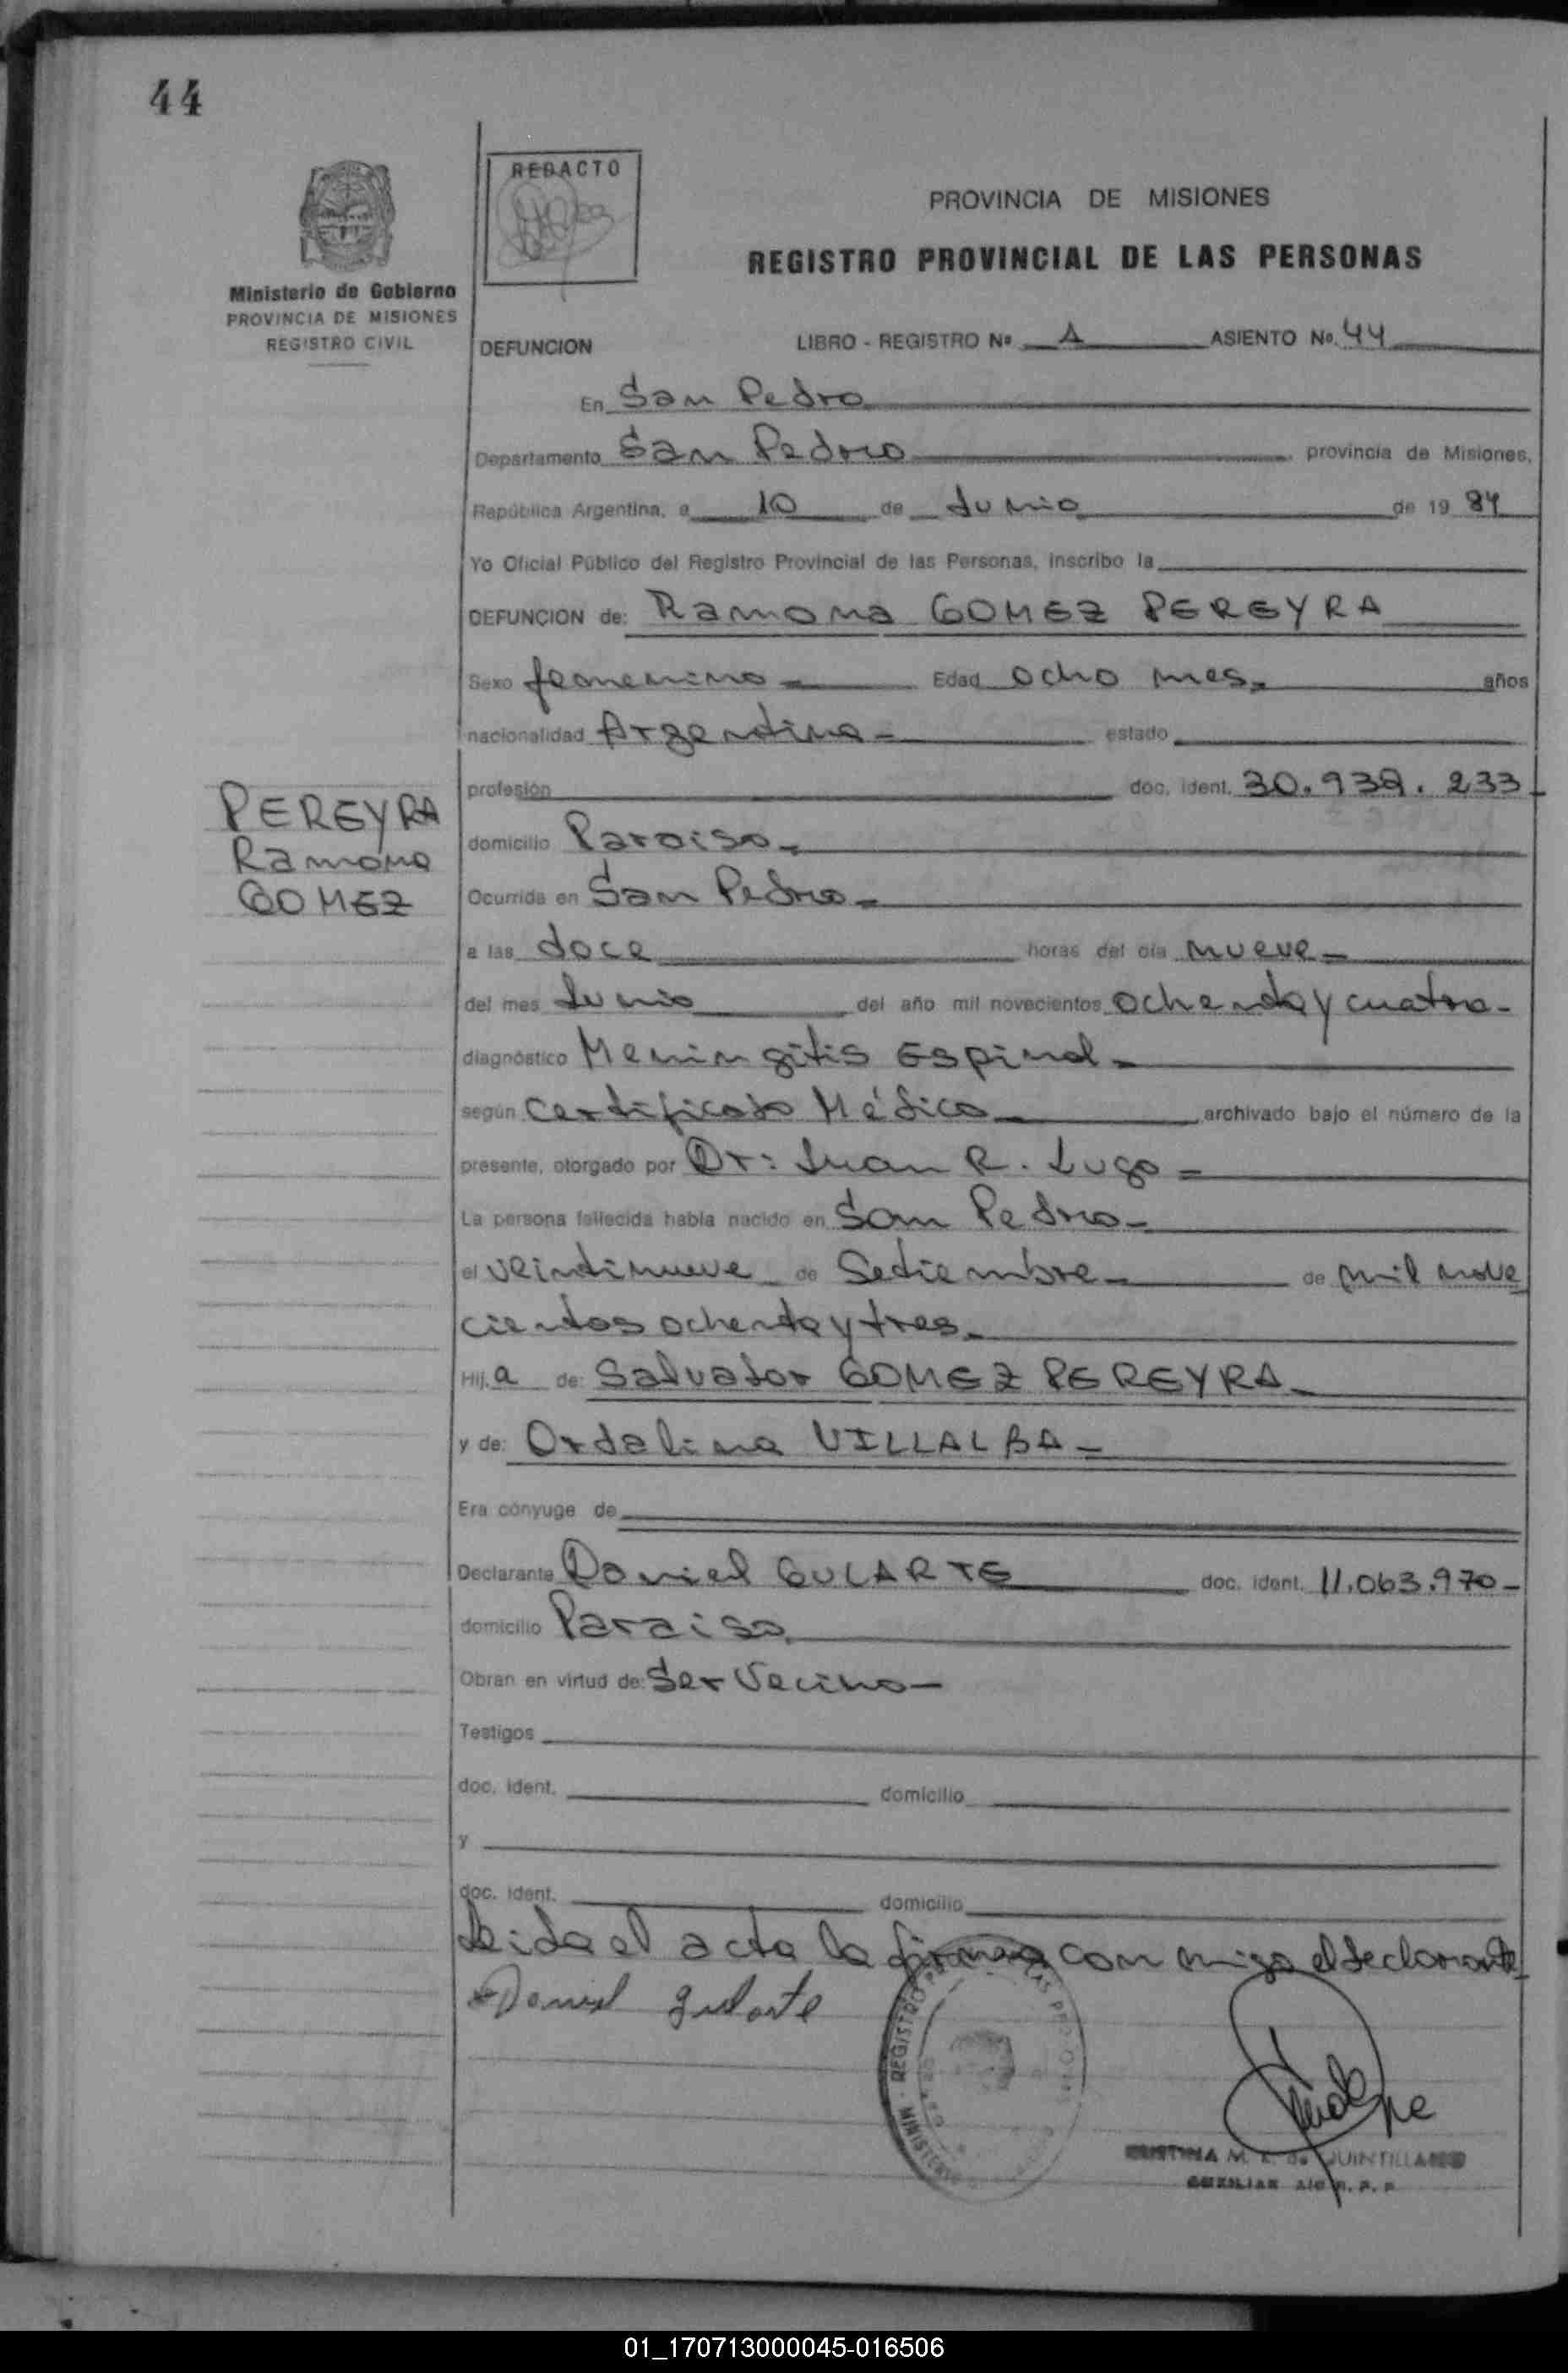 44
REDACTO
PROVINCIA DE MISIONES
REGISTRO PROVINCIAL DE LAS PERSONAS
Ministerio de Gobierno
PROVINCIA DE MISIONES
REGISTRO CIVIL
DEFUNCION LIBRO - REGISTRO Nº 1 ASIENTO No. 44
En San Pedro
Departamento San Pedro provincia de Misiones,
República Argentina, a 10 de Junio de 19 84
Yo Oficial Público del Registro Provincial de las Personas, inscribo la
DEFUNCION de: Ramona GOMEZ PEREYRA
Sexo femenino Edad ocho mes años
nacionalidad Argentina estado
profesión doc. ident. 30.939.233
PEREYRA
Ramona
GOMEZ
domicilio Paraiso
Ocurrida en San Pedro
a las doce horas del día nueve
del mes Junio del año mil novecientos ochenta y cuatro
diagnóstico Meningitis Espinal
según Certificado Médico archivado bajo el número de la
presente, otorgado por Dr: Juan R. Lugo
La persona fallecida había nacido en San Pedro
el veintinueve de Setiembre de mil nove
cientos ochenta y tres
Hij a de: Salvador GOMEZ PEREYRA
y de: Ordalina VILLALBA
Era cónyuge de
Declarante Daniel GULARTE doc. ident. 11.063.970
domicilio Paraiso
Obran en virtud de: Ser Vecino
Testigos
doc. ident. domicilio
y
doc. ident. domicilio
Leida el acta la firma con migo el declarante
Daniel Gularte
REGISTRO
MINISTERIO
CRISTINA M. de QUINTILLANO
AUXILIAR
01_170713000045-016506